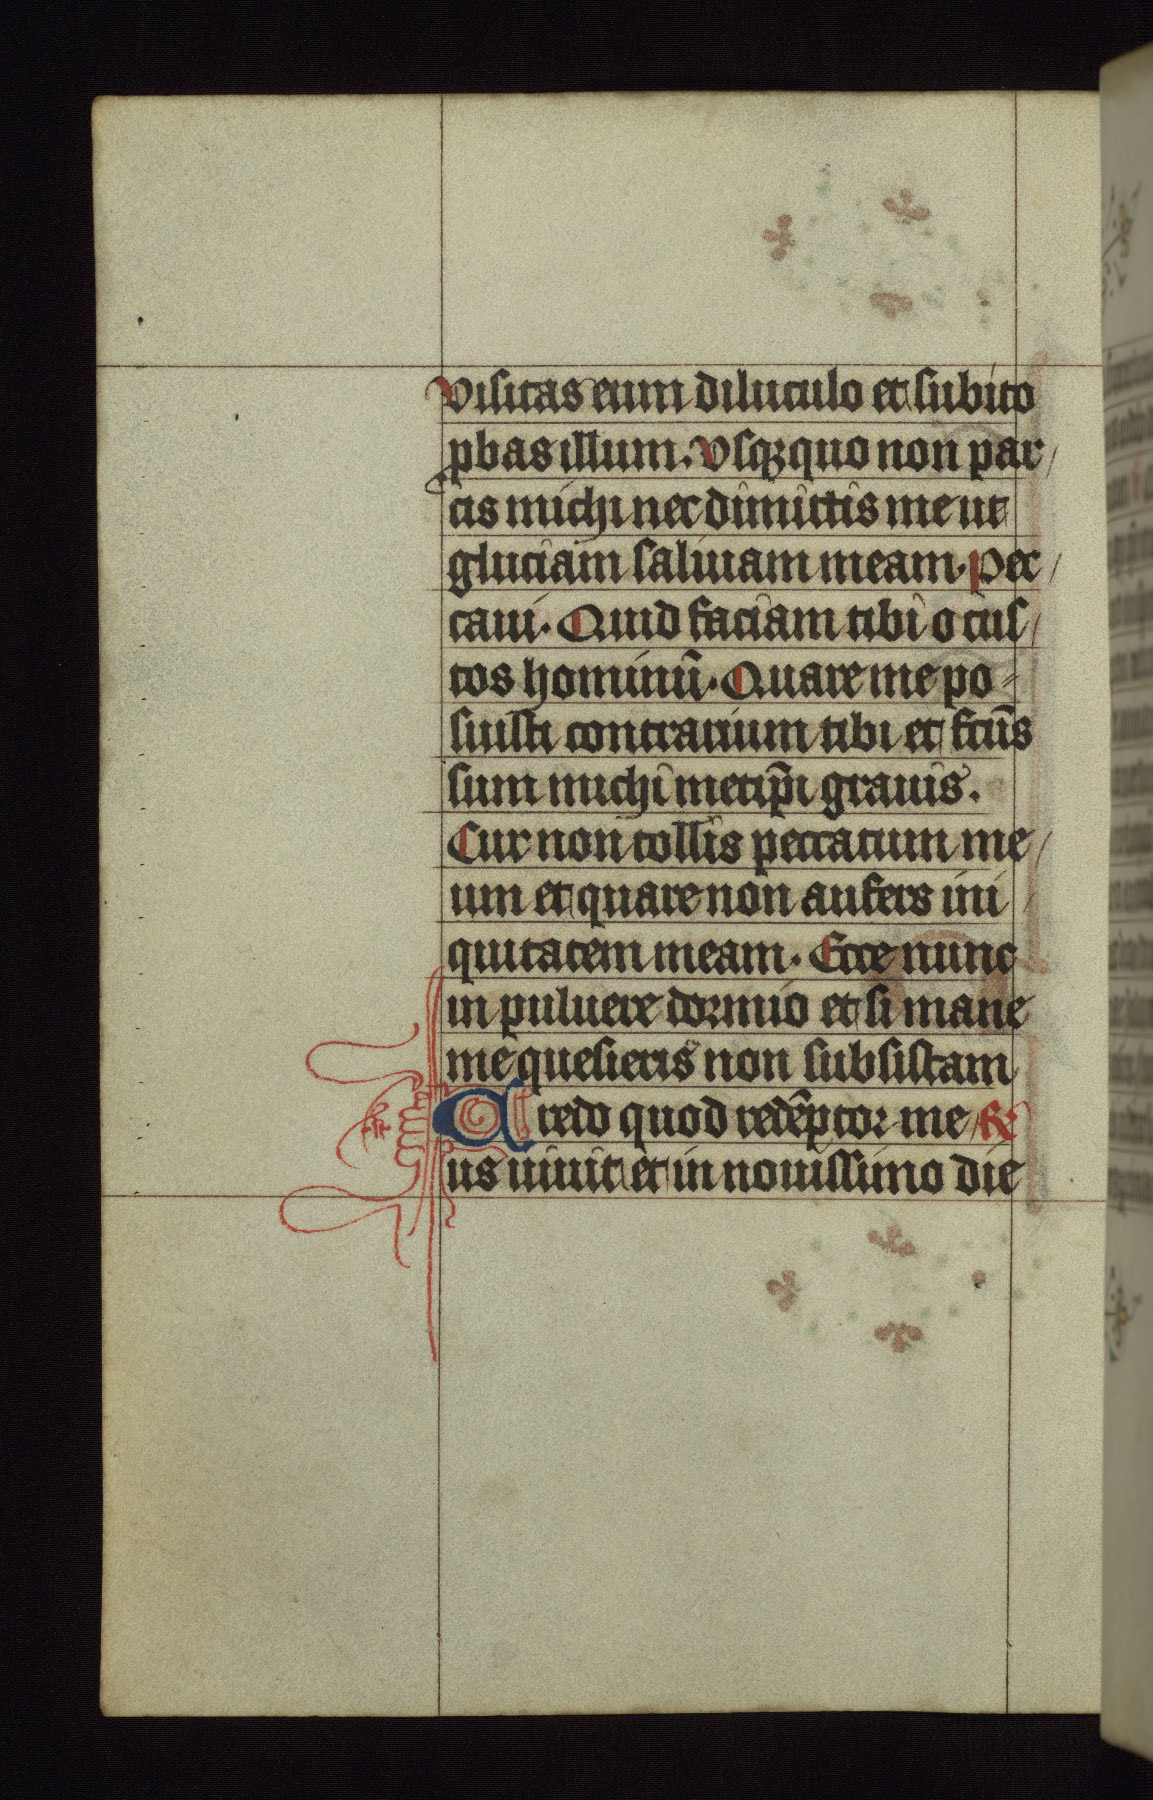 Visitas eum diluculo et subito
ꝓbas illum. Vsqꝫquo non par/
cis michi nec dimittis me ut
gluciam saliuam meam. Pec/
caui. Quid faciam tibi o cus/
tos hominū. Quare me po=
suisti contrarium tibi et fcūs
sum michi metip̄i grauis.
Cur non tollis peccatum me/
um et quare non aufers ini/
quitatem meam. Ecce nunc
in puluere dormio et si mane
me quesieris non subsistam
Credo quod redēptor me R
us uiuit et in nouissimo die